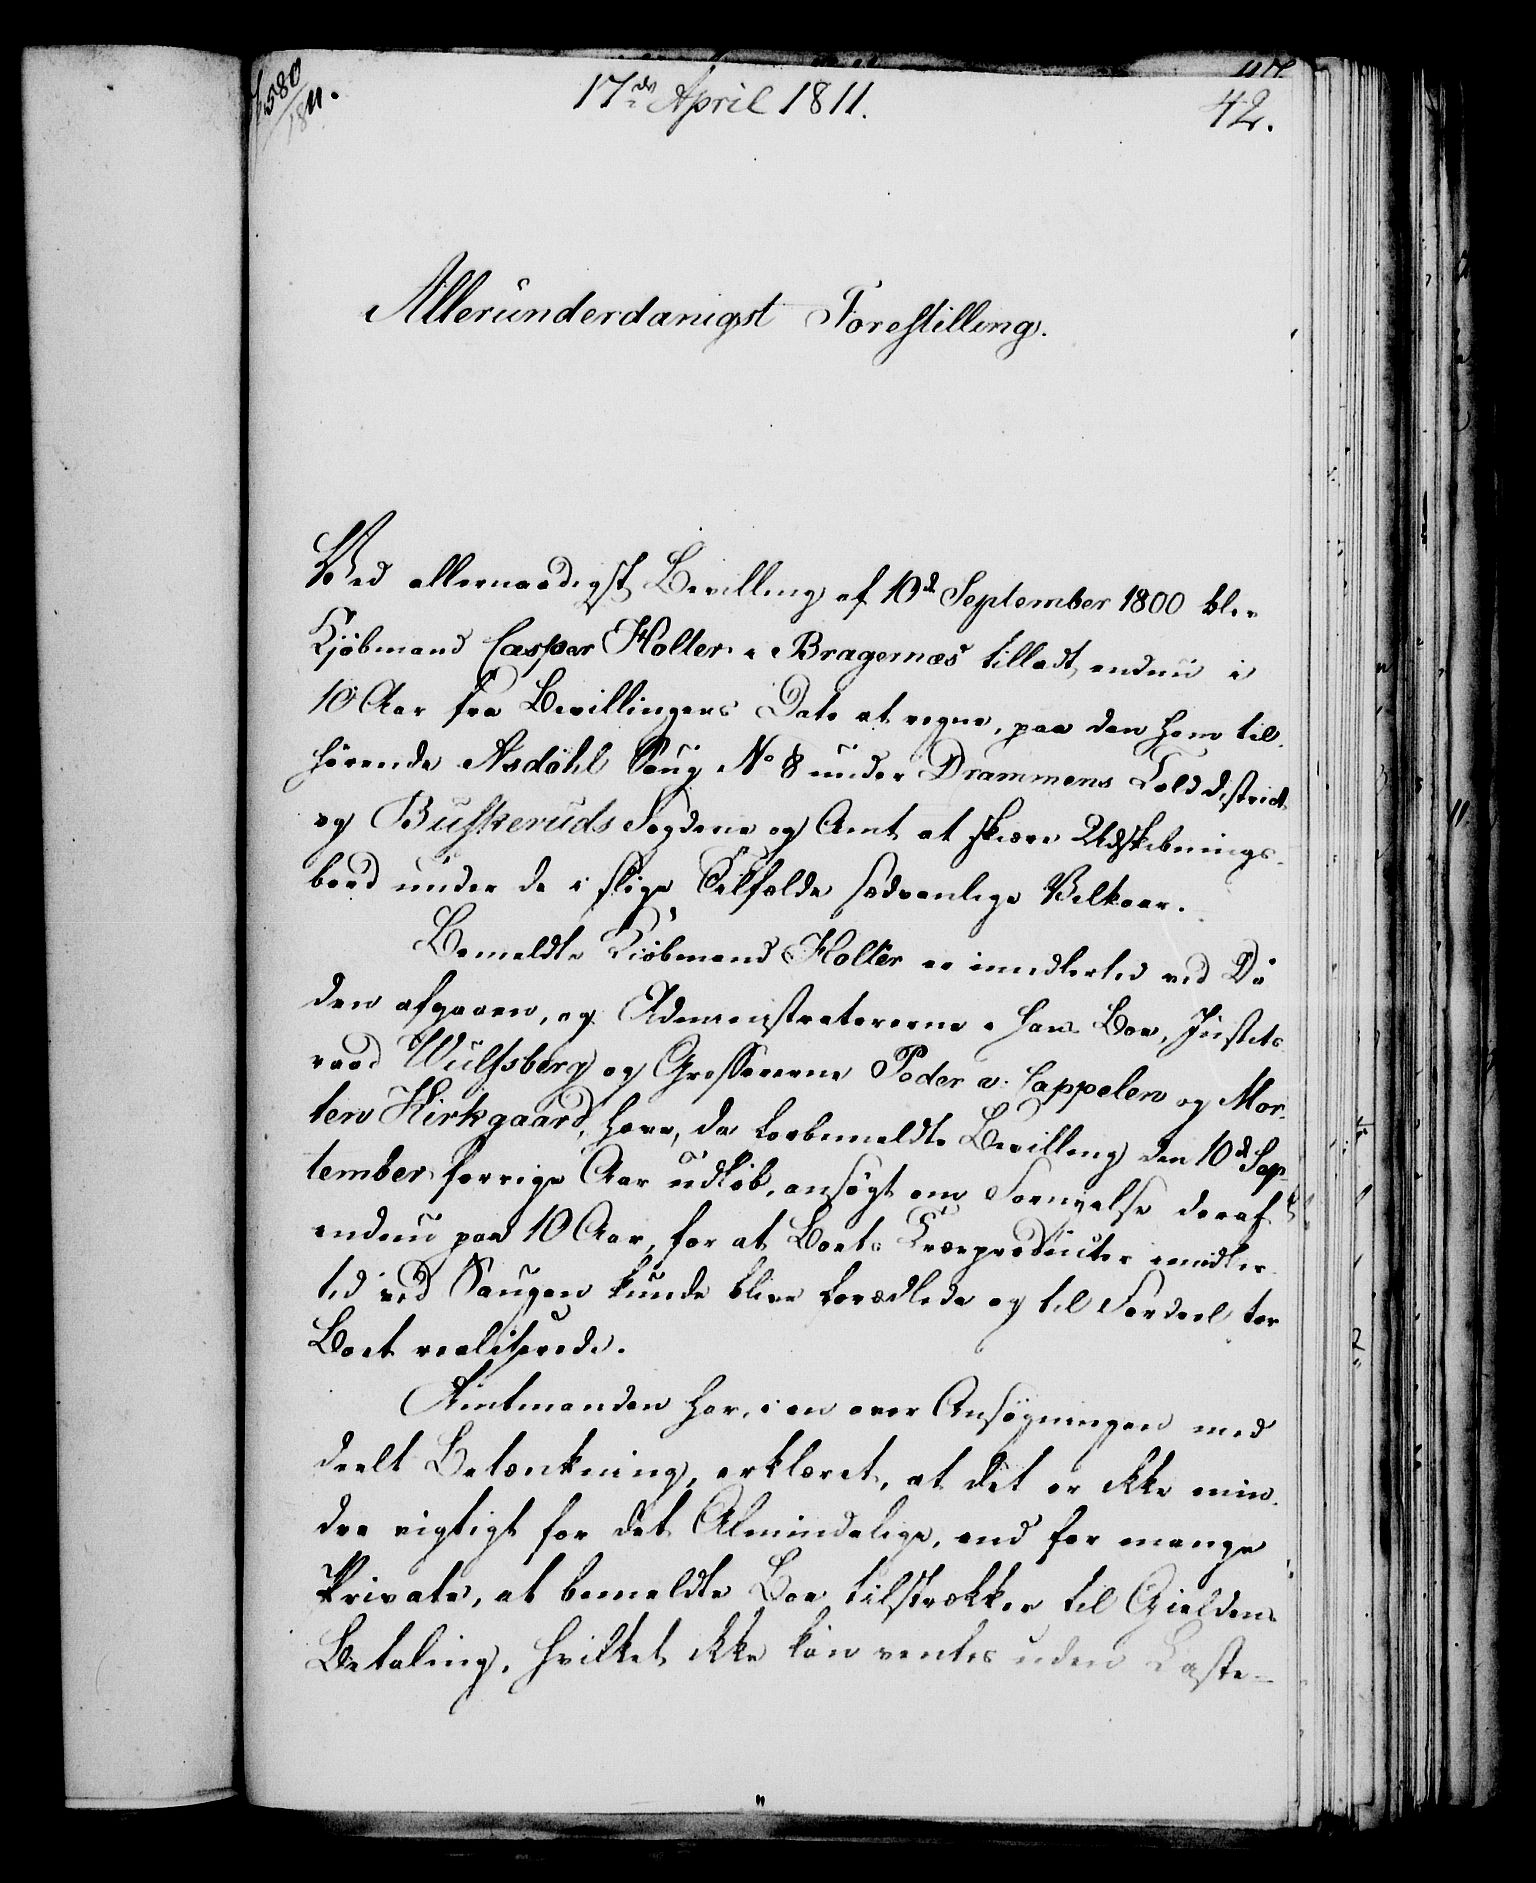 580
1811.
17de April 1811.
42.
Allerunderdanigst Forestilling.
Ved allernaadigst Bevilling af 10d September 1800 blev
Kjøbmand Casper Holter i Bragernæs tilladt, endnu i
10 Aar fra Bevillingens Dato at regne, paa den ham til-
hørende Asdöhl Saug No 8 under Drammens Tolddistrict
og Buskeruds Fogderie og Amt at skiære Udskibnings-
bord under de i slige Tilfælde sædvanlige Vilkaar.
Bemeldte Kiöbmand Holter er imidlertid ved Dö
den afgaaen, og Administratorerne i hans Boe, Justits-
raad Wulfsberg og Grossererne Peder v. Cappelen og Mor-
ten Kirkgaard, have, da forbemeldte Bevilling den 10d Sep-
tember forrige Aar udløb, ansøgt om Fornyelse deraf
endnu paa 10 Aar, for at Boets Træeproducter imidler-
tid ved Saugen kunde blive forædlede og til Fordeel for
Boet realiserede.
Amtmanden har, i en over Ansøgningen med
deelt Betænkning, erklæret, at det er ikke min-
dre vigtigt for det Almindelige, end for mange
Private, at bemeldte Boe tilstrækker til Gieldens
Betaling, hvilket ikke kan ventes uden Laste-